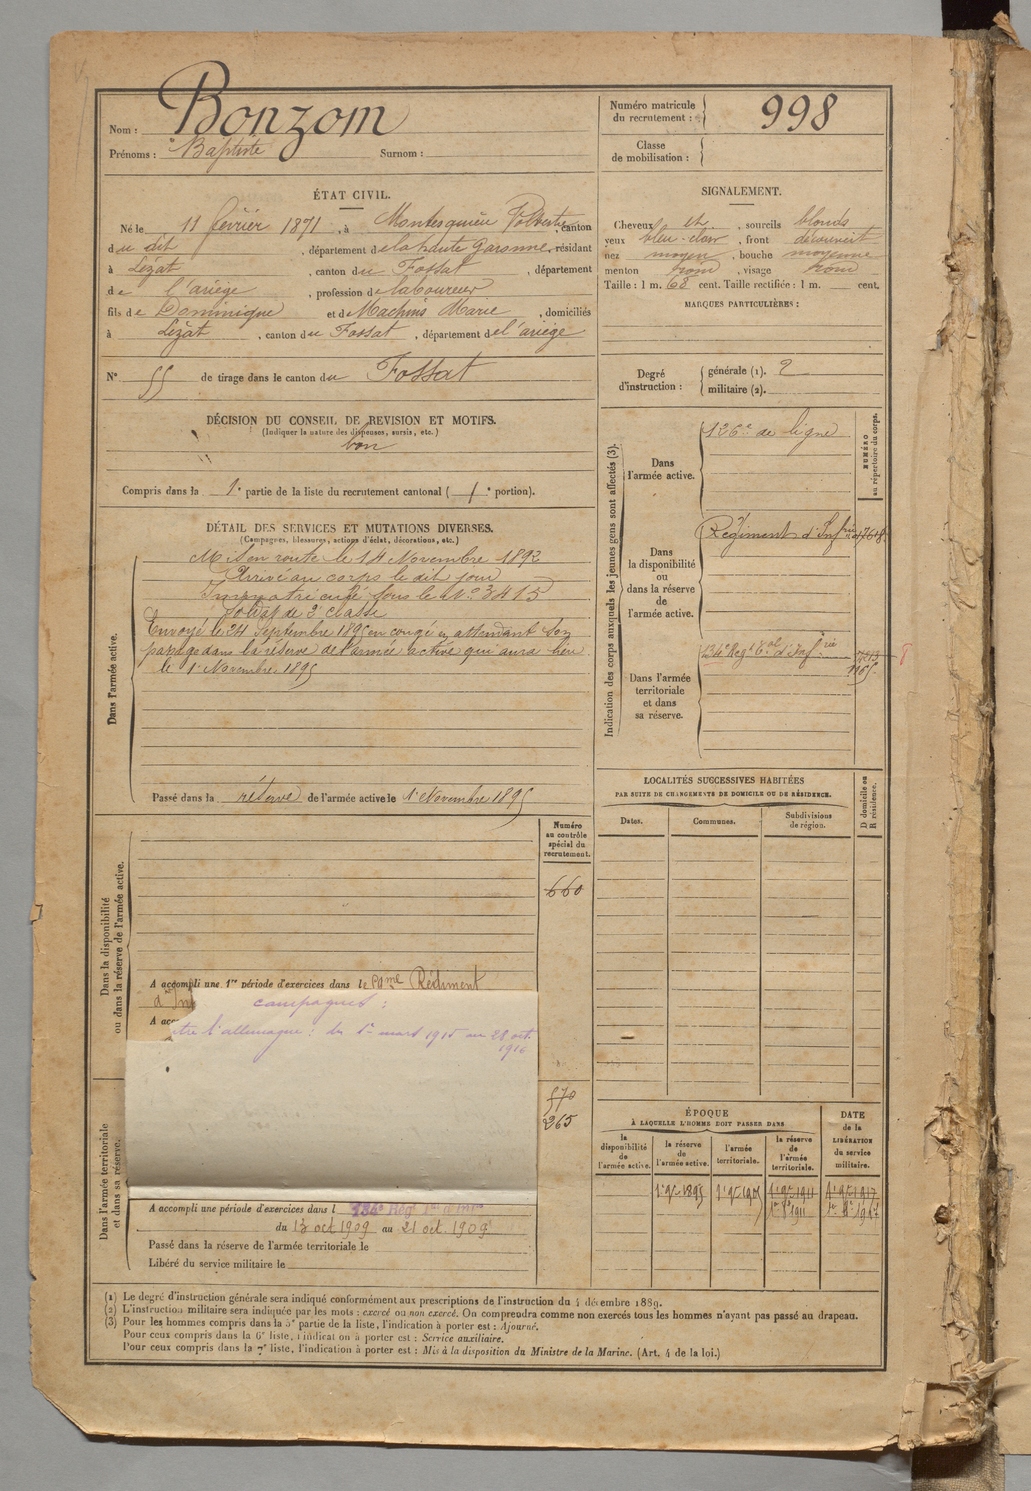 Nom : Bonzom
Prénoms : Baptiste Surnom :
Numéro matricule du recrutement : 998
Classe de mobilisation :
ÉTAT CIVIL.
Né le 11 février 1871, à Montesquieu Volvestre, canton
du dit, département de la haute Garonne, résidant
à Lézat, canton du Fossat, département
de l'ariège, profession de laboureur
fils de Dominique et de Machins Marie, domiciliés
à Lézat, canton du Fossat, département de l'ariège
N° 55 de tirage dans le canton du Fossat
DÉCISION DU CONSEIL DE REVISION ET MOTIFS.
(Indiquer la nature des dispenses, sursis, etc.)
bon
Compris dans la 1e partie de la liste du recrutement cantonal (1e portion).
DÉTAIL DES SERVICES ET MUTATIONS DIVERSES.
(Campagnes, blessures, actions d'éclat, décorations, etc.)
Dans l'armée active.
Mis en route le 14 Novembre 1892
Arrivé au corps le dit jour
Immatriculé sous le N° 3415
Soldat de 2e classe
Envoyé le 24 Septembre 1895 en congé en attendant son
passage dans la réserve de l'armée active qui aura lieu
le 1er Novembre 1895
Passé dans la réserve de l'armée active le 1er Novembre 1895
Dans la disponibilité ou dans la réserve de l'armée active.
Numéro au contrôle spécial du recrutement.
660
A accompli une 1re période d'exercices dans le Régiment
d'Inf
A acc
campagnes :
tre l'allemagne : du 1er mars 1915 au 28 oct.
1916
Dans l'armée territoriale et dans sa réserve.
570
265
A accompli une période d'exercices dans l 134e Régt
du 13 oct 1909 au 21 oct 1909
Passé dans la réserve de l'armée territoriale le
Libéré du service militaire le
SIGNALEMENT.
Cheveux et, sourcils blonds
yeux bleu-clair, front découvert
nez moyen, bouche moyenne
menton rond, visage rond
Taille : 1 m. 68 cent. Taille rectifiée : 1 m. cent.
MARQUES PARTICULIÈRES :
Degré d'instruction : générale (1). 2
militaire (2).
Indication des corps auxquels les jeunes gens sont affectés (3).
NUMÉRO au répertoire du corps.
Dans l'armée active.
126e de ligne
Dans la disponibilité ou dans la réserve de l'armée active.
Régiment d'Infrie
Dans l'armée territoriale et dans sa réserve.
134e Regt Tal d'Inf.rie
LOCALITÉS SUCCESSIVES HABITÉES
PAR SUITE DE CHANGEMENTS DE DOMICILE OU DE RÉSIDENCE.
Dates. Communes. Subdivisions de région. D domicile ou R résidence.
ÉPOQUE
À LAQUELLE L'HOMME DOIT PASSER DANS
DATE de la LIBÉRATION du service militaire.
la disponibilité de l'armée active. la réserve de l'armée active. l'armée territoriale. la réserve de l'armée territoriale.
(1) Le degré d'instruction générale sera indiqué conformément aux prescriptions de l'instruction du 4 décembre 1889.
(2) L'instruction militaire sera indiquée par les mots : exercé ou non exercé. On comprendra comme non exercés tous les hommes n'ayant pas passé au drapeau.
(3) Pour les hommes compris dans la 5e partie de la liste, l'indication à porter est : Ajourné.
Pour ceux compris dans la 6e liste, l'indication à porter est : Service auxiliaire.
Pour ceux compris dans la 7e liste, l'indication à porter est : Mis à la disposition du Ministre de la Marine. (Art. 4 de la loi.)